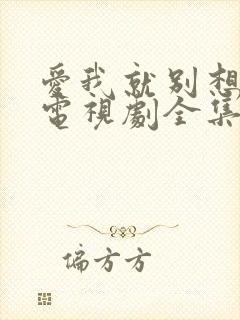 愛我就別想
電視劇全集
偏方方